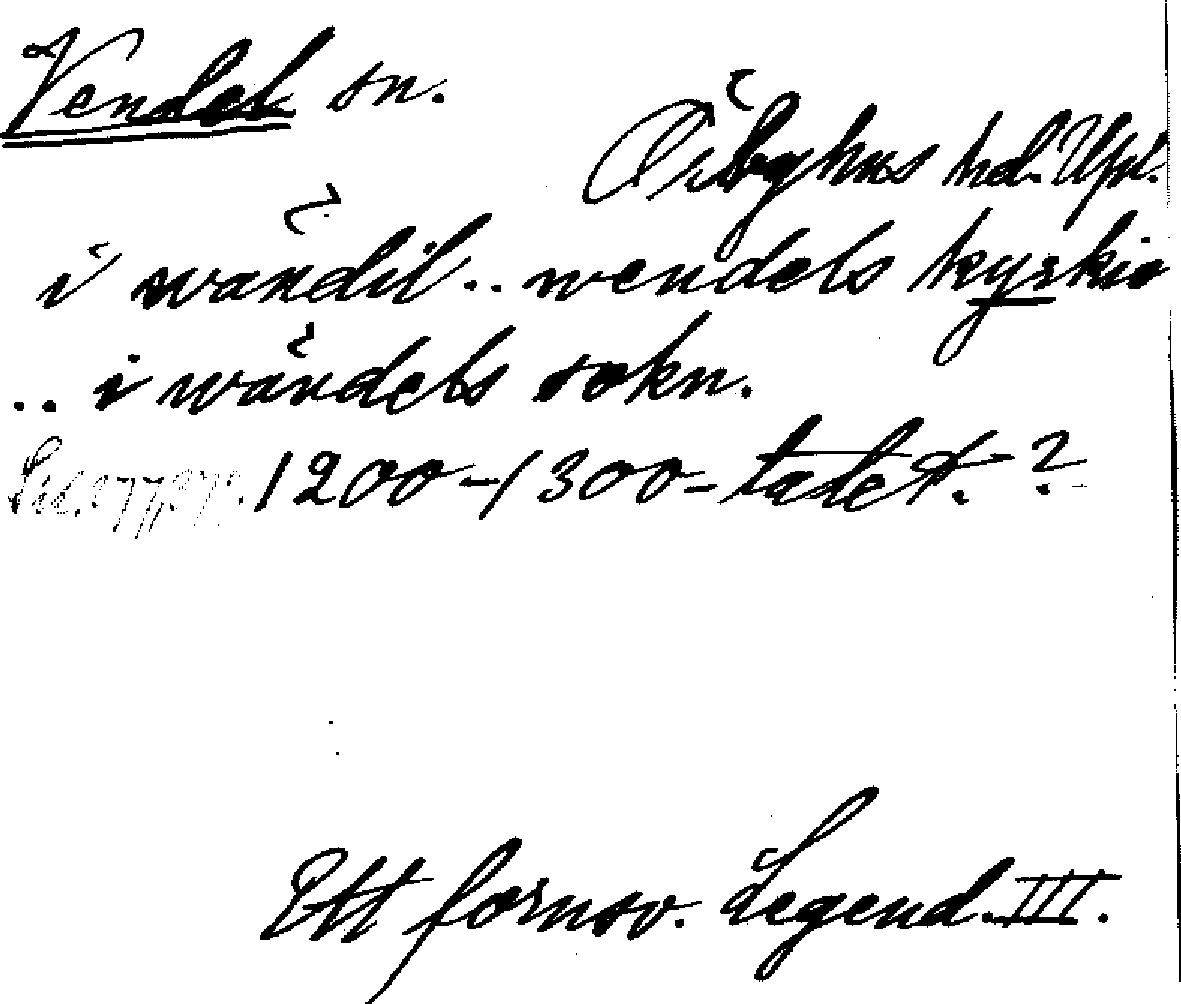 Vendel sn.
Örbyhus hd. Upl.
i wändil .. wendels kyrkio
.. i wändels sokn.
1200-/1300-talet. ?
Ett fornsv. Legend. III.